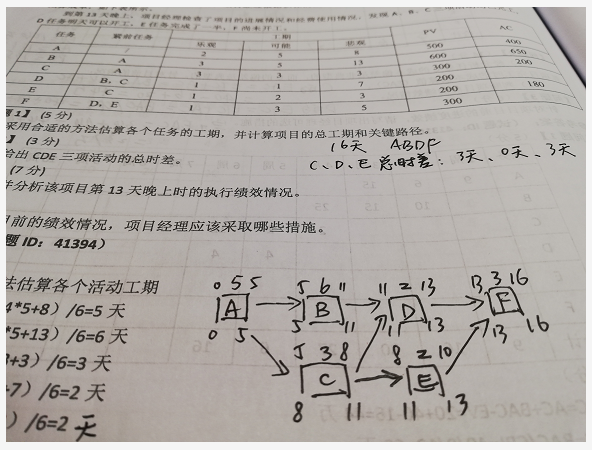 到第13天晚上，项目经理检查了项目的进展情况和经费使用情况，发现A、B、C
D任务明天可以开工，E任务完成了一半，F尚未开工。
任务 紧前任务 工期 PV AC
乐观 可能 悲观
A 2 5 8 500 400
B A 3 5 13 600 650
C A 3 3 3 300 200
D B，C 1 1 7 200
E C 1 2 3 200 180
F D，E 1 3 5 300
题1】（5分）
采用合适的方法估算各个任务的工期，并计算项目的总工期和关键路径。
16天 ABDF
】（3分）
给出CDE三项活动的总时差。
C、D、E总时差：3天、0天、3天
（7分）
并分析该项目第13天晚上时的执行绩效情况。
目前的绩效情况，项目经理应该采取哪些措施。
题ID：41394）
法估算各个活动工期
4*5+8）/6=5天
*5+13）/6=6天
3+3）/6=3天
+7）/6=2天
）/6=2天
0 5 5
A
0 5
5 6 11
B
5 11
11 2 13
D
11 13
13 3 16
F
13 16
5 3 8
C
8 11
8 2 10
E
11 13